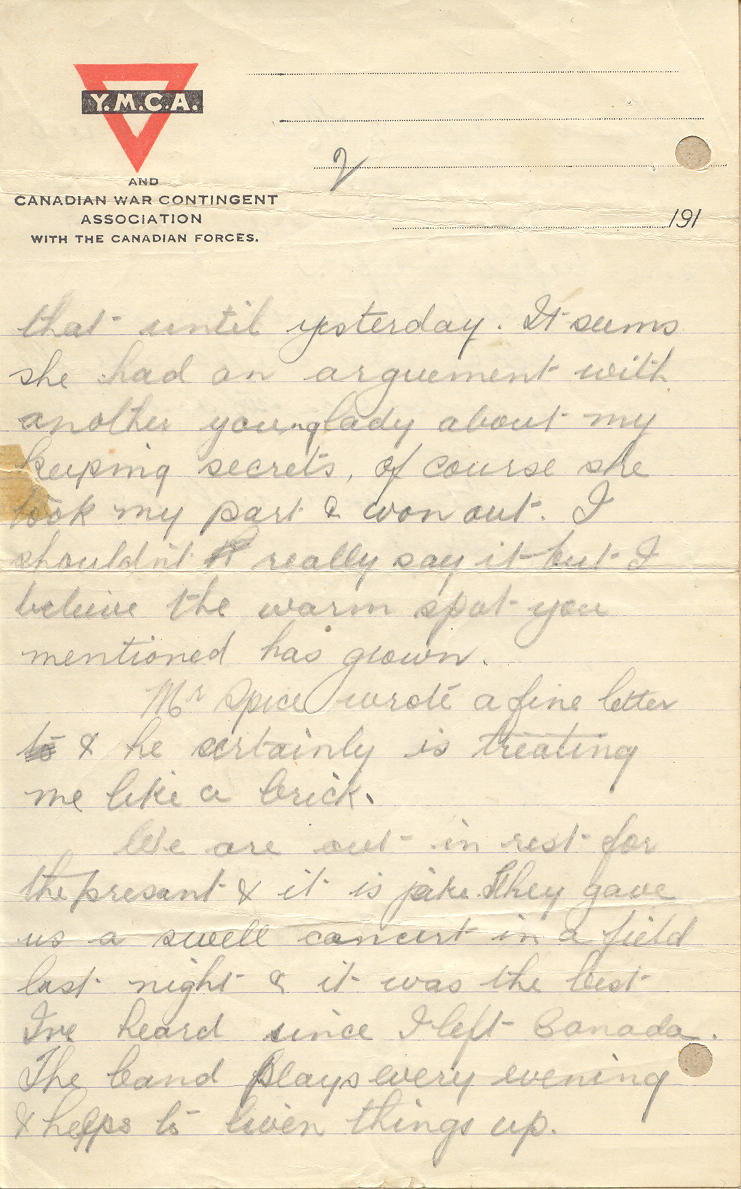 Y.M.C.A.
AND
CANADIAN WAR CONTINGENT
ASSOCIATION
WITH THE CANADIAN FORCES.
2
191
that until yesterday. It seems
she had an arguement with
another young lady about my
keeping secrets, of course she
took my part & won out. I
shouldn't really say it but I
believe the warm spot you
mentioned has grown.
Mr Spice wrote a fine letter
to & he certainly is treating
me like a brick.
We are out in rest for
the present & it is jake. They gave
us a swell concert in a field
last night & it was the best
I've heard since I left Canada.
The band plays every evening
& helps to liven things up.